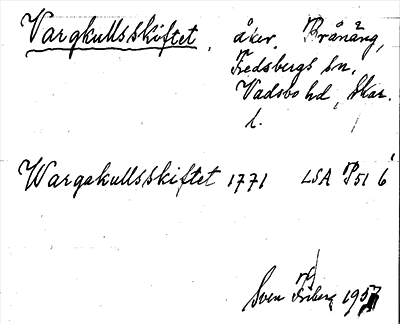 Vargkullsskiftet, åker, Prånäng,
Fredsbergs sn,
Vadsbo hd, Skar.
l.
Wargakullsskiftet 1771 LSA P51 6
Sven Friberg 1957